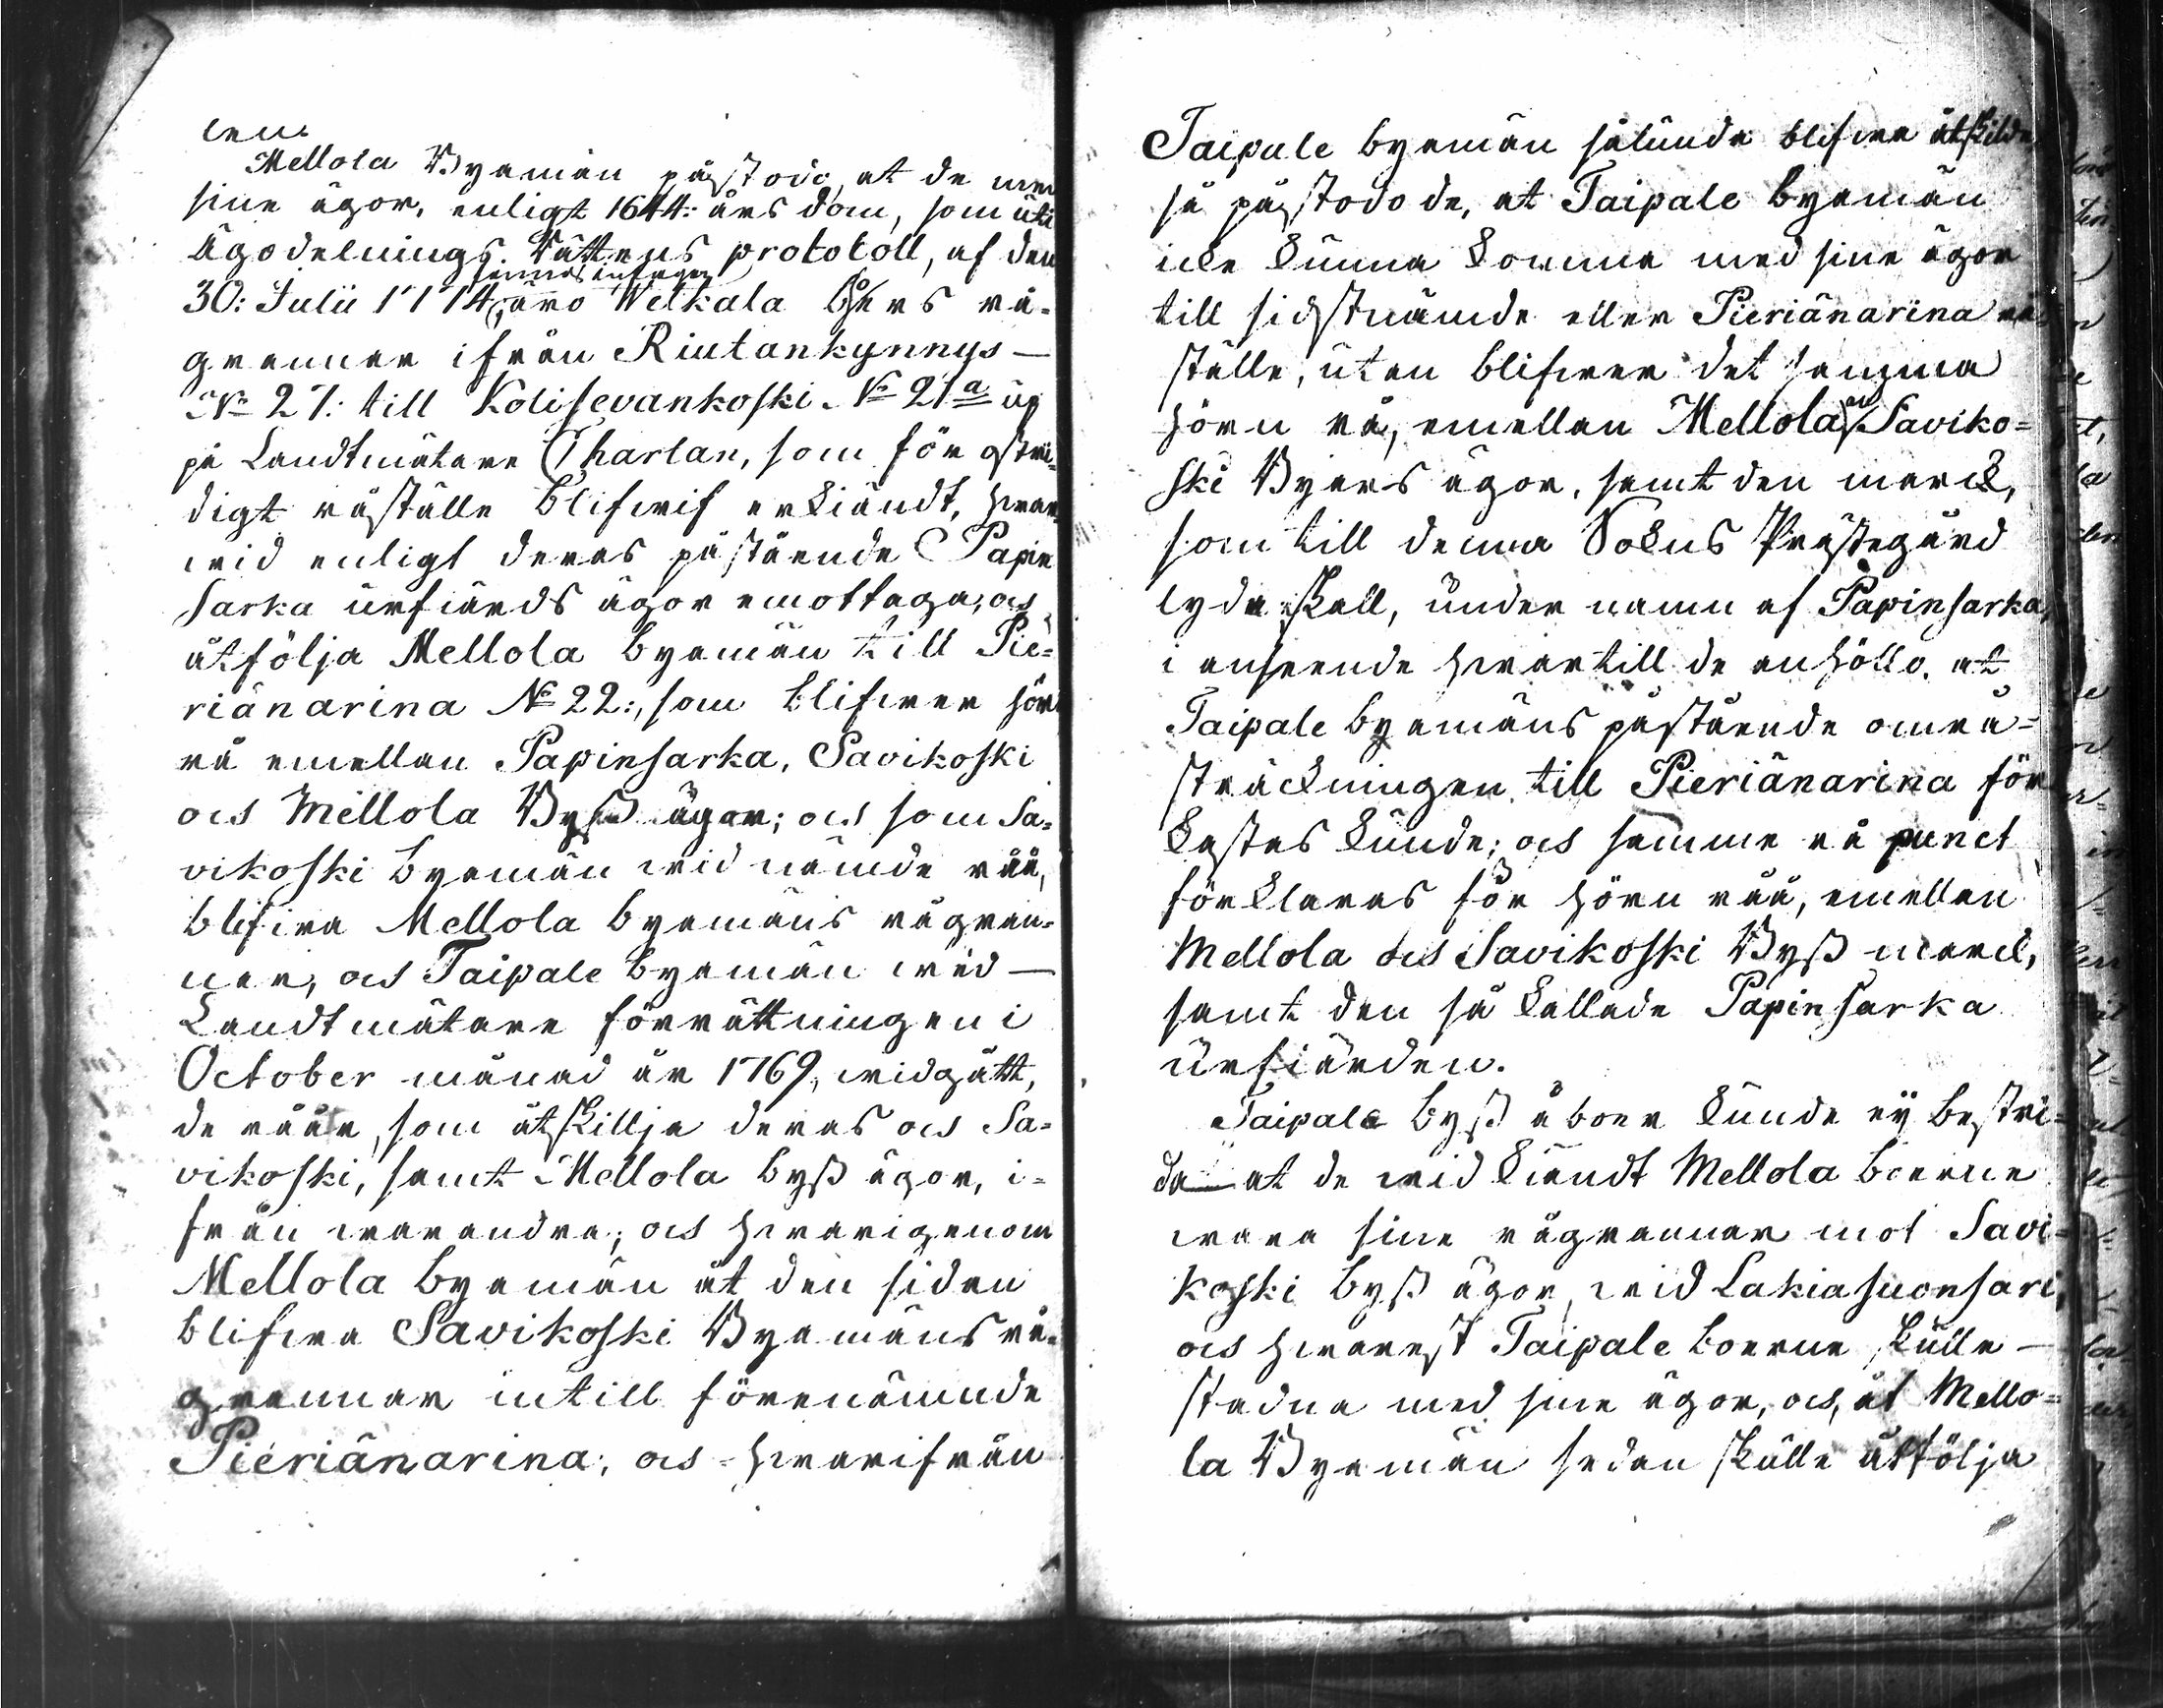 len.
Mellola Byamän påstodo, at de med
sine ägor, enligt 1644: års dom, som uti
Ägodelnings Rättens protocoll, af den
finnes intagen
30: Julii 1774, äro Welkala Byers rå-
grannar ifrån Riutankynnys —
No 27: till Kolisevankoski No 21a up
på Landtmätare Charlan, som för ostri-
digt råställe blifwif erkiändt, hwar-
wid enligt deras påstående Papin
sarka urfiärds ägor emottaga, och
åtfölja Mellola byamän till Pie-
riänarina No 22:, som blifwer hörn
rå emellan Papinsarka, Savikoski
och Mellola Byß ägor; och som Sa-
vikoski byamän wid nämde råå,
blifwa Mellola byamäns rågran-
nar, och Taipale byamän wid —
Landtmätare förrättningen i
October månad år 1769, widgått,
de råår, som åtskillja deras och Sa-
vikoski, samt Mellola byß ägor, i-
från warandra; och hwarigenom
Mellola byamän åt den sidan
blifwa Savikoski Byamäns rå-
grannar intill förenämnde
Pieriänarina; och hwarifrån
Taipale byamän sålunda blifwa åtskilde
så påstodo de, at Taipale byamän
icke kunna komma med sine ägor
till sidstnämde eller Pieriänarina rå-
ställe, utan blifwer det samma
hörn rå, emellan Mellola och Saviko-
ski Byars ägor, samt den marck,
som till denna Sokns Prästegård
lyda skall, under namn af Papinsarka,
i anseende hwartill de anhöllo, at
Taipale byamäns påstående om rå-
sträckningen till Pieriänarina för-
kastas kunde; och samma rå punct
förklaras för hörn råå, emellan
Mellola och Savikoski Byß marck,
samt den så kallade Papinsarka
urfiärden.
Taipale byß åboer kunde ej bestri-
da at de widkiändt Mellola boerne
wara sine rågrannar mot Savi-
koski byß ägor, wid Lakiasuonsari,
och hwarest Taipale boerne skulle —
stadna med sine ägor, och, åt Mello-
la Byamän sedan skulle åtfölja